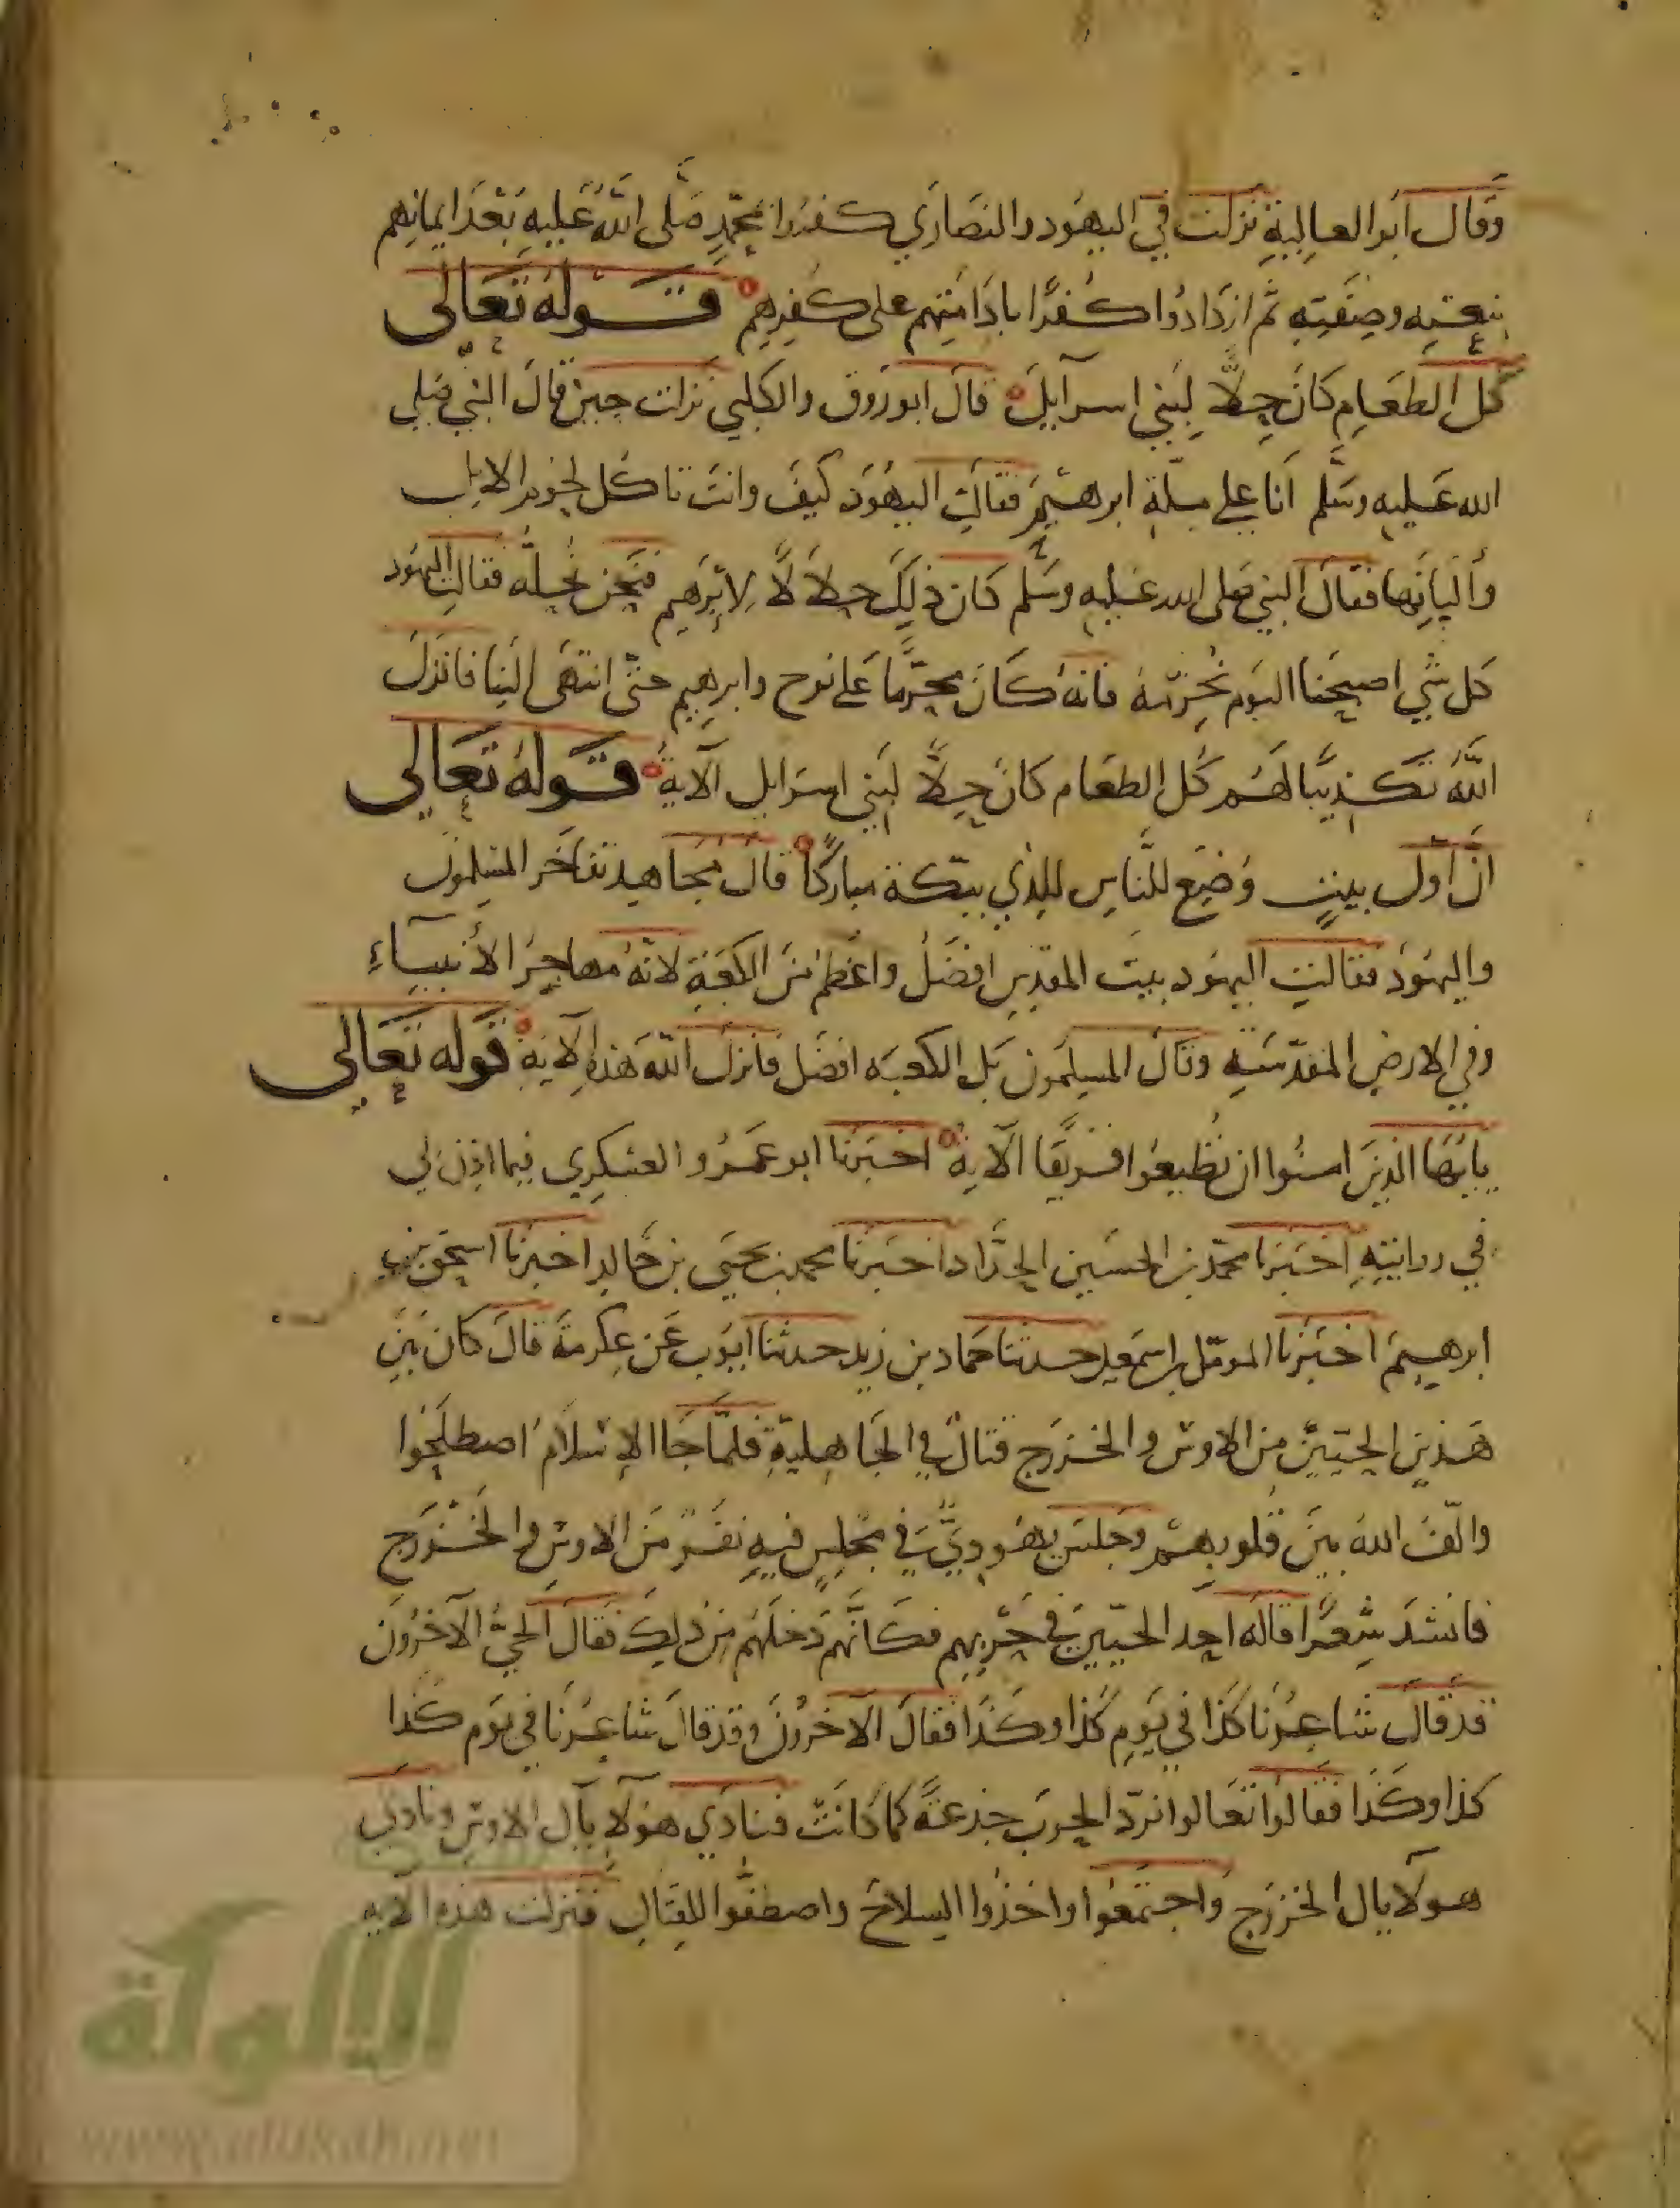 وقال ابوا العالية نزلت في اليهود والنصاري كفروا بمحمد صلى الله عليه بعد ايمانهم
بنعته وصفته ثم ازدادوا كفرا باقامتهم على كفرهم قوله تعالى
كل الطعام كان حلا لبني اسرآيل قال ابو روق والكلبي نزلت حين قال النبي صلى
الله عليه وسلم انا على ملة ابرهيم فقالت اليهود كيف وانت تاكل لحوم الابل
والبانها فقال النبي صلى الله عليه وسلم كان ذلك حلالا لابرهيم فنحن نحله فقالت اليهود
كل شي اصبحنا اليوم نحرمه فانه كان محرما على نوح وابرهيم حتى انتهى الينا فانزل
الله تكذيبا لهم كل الطعام كان حلا لبني اسرايل الآية قوله تعالى
ان اول بيت وضع للناس للذي ببكة مباركا قال مجاهد تفاخر المسلمون
واليهود فقالت اليهود بيت المقدس افضل واعظم من الكعبة لانه مهاجر الأنبياء
وفي الارض المقدسة وقال المسلمون بل الكعبه افضل فانزل الله هذه الآية قوله تعالى
يايها الذين امنوا ان تطيعوا فريقا الآية اخبرنا ابو عمرو العسكري فيما اذن لي
في روايته اخبرنا محمد بن الحسين الحداد اخبرنا محمد بن يحيى بن خالد اخبرنا اسحق بن
ابرهيم اخبرنا المومل بن اسمعيل حدثنا حماد بن زيد حدثنا ايوب عن عكرمة قال كان بين
هذين الحيين من الاوس والخزرج قتال في الجاهلية فلما جا الإسلام اصطلحوا
والف الله بين قلوبهم وجلس يهودي في مجلس فيه نفر من الاوس والخزرج
فانشد شعرا قاله احد الحيين في حربهم فكانهم دخلهم من ذلك فقال الحي الآخرون
قد قال شاعرنا كذا في يوم كذا وكذا فقال الآخرون وقد قال شاعرنا في يوم كذا
كذا وكذا فقالوا تعالوا نرد الحرب جذعة كما كانت فنادي هولآ يآل الاوس ونادي
هولآ يال الخزرج واجتمعوا واخذوا السلاح واصطفوا للقتال فنزلت هذه الآيه
الالوكة
www.alukah.net